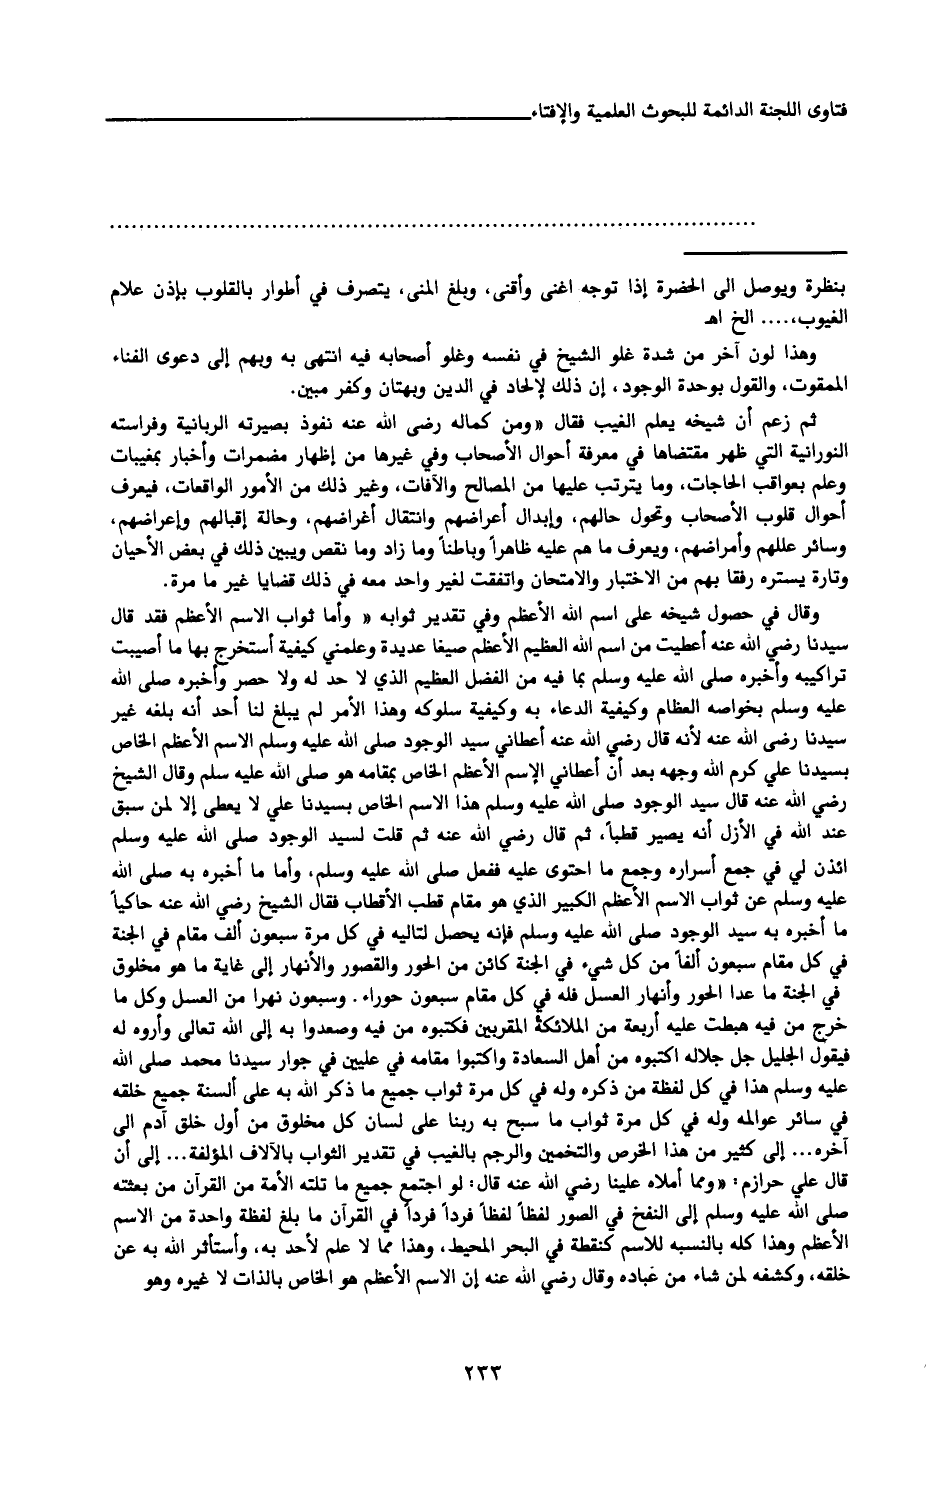 فتاوى اللجنة الدائمة للبحوث العلمية والإفتاء
بنظرة ويوصل الى الحضرة إذا توجه اغنى وأقنى، وبلغ المنى، يتصرف في أطوار بالقلوب بإذن علام
الغيوب،.... الخ اهـ
وهذا لون آخر من شدة غلو الشيخ في نفسه وغلو أصحابه فيه انتهى به وبهم إلى دعوى الفناء
الممقوت، والقول بوحدة الوجود، إن ذلك لإلحاد في الدين وبهتان وكفر مبين.
ثم زعم أن شيخه يعلم الغيب فقال «ومن كماله رضى الله عنه نفوذ بصيرته الربانية وفراسته
النورانية التي ظهر مقتضاها في معرفة أحوال الأصحاب وفي غيرها من إظهار مضمرات وأخبار بمغيبات
وعلم بعواقب الحاجات، وما يترتب عليها من المصالح والآفات، وغير ذلك من الأمور الواقعات، فيعرف
أحوال قلوب الأصحاب وتحول حالهم، وإبدال أعراضهم وانتقال أغراضهم، وحالة إقبالهم وإعراضهم،
وسائر عللهم وأمراضهم، ويعرف ما هم عليه ظاهراً وباطناً وما زاد وما نقص ويبين ذلك في بعض الأحيان
وتارة يستره رفقا بهم من الاختبار والامتحان واتفقت لغير واحد معه في ذلك قضايا غير ما مرة.
وقال في حصول شيخه على اسم الله الأعظم وفي تقدير ثوابه « وأما ثواب الاسم الأعظم فقد قال
سيدنا رضي الله عنه أعطيت من اسم الله العظيم الأعظم صيغا عديدة وعلمني كيفية أستخرج بها ما أصيبت
تراكيبه وأخبره صلى الله عليه وسلم بما فيه من الفضل العظيم الذي لا حد له ولا حصر وأخبره صلى الله
عليه وسلم بخواصه العظام وكيفية الدعاء به وكيفية سلوكه وهذا الأمر لم يبلغ لنا أحد أنه بلغه غير
سيدنا رضى الله عنه لأنه قال رضي الله عنه أعطاني سيد الوجود صلى الله عليه وسلم الاسم الأعظم الخاص
بسيدنا علي كرم الله وجهه بعد أن أعطاني الإسم الأعظم الخاص بمقامه هو صلى الله عليه سلم وقال الشيخ
رضي الله عنه قال سيد الوجود صلى الله عليه وسلم هذا الاسم الخاص بسيدنا علي لا يعطى إلا لمن سبق
عند الله في الأزل أنه يصير قطباً، ثم قال رضي الله عنه ثم قلت لسيد الوجود صلى الله عليه وسلم
ائذن لي في جمع أسراره وجمع ما احتوى عليه ففعل صلى الله عليه وسلم، وأما ما أخبره به صلى الله
عليه وسلم عن ثواب الاسم الأعظم الكبير الذي هو مقام قطب الأقطاب فقال الشيخ رضي الله عنه حاكياً
ما أخبره به سيد الوجود صلى الله عليه وسلم فإنه يحصل لتاليه في كل مرة سبعون ألف مقام في الجنة
في كل مقام سبعون ألفاً من كل شيء في الجنة كائن من الحور والقصور والأنهار إلى غاية ما هو مخلوق
في الجنة ما عدا الحور وأنهار العسل فله في كل مقام سبعون حوراء. وسبعون نهرا من العسل وكل ما
خرج من فيه هبطت عليه أربعة من الملائكة المقربين فكتبوه من فيه وصعدوا به إلى الله تعالى وأروه له
فيقول الجليل جل جلاله اكتبوه من أهل السعادة واكتبوا مقامه في عليين في جوار سيدنا محمد صلى الله
عليه وسلم هذا في كل لفظة من ذكره وله في كل مرة ثواب جميع ما ذكر الله به على ألسنة جميع خلقه
في سائر عوالمه وله في كل مرة ثواب ما سبح به ربنا على لسان كل مخلوق من أول خلق آدم الى
آخره... إلى كثير من هذا الخرص والتخمين والرجم بالغيب في تقدير الثواب بالآلاف المؤلفة... إلى أن
قال علي حرازم: «ومما أملاه علينا رضي الله عنه قال: لو اجتمع جميع ما تلته الأمة من القرآن من بعثته
صلى الله عليه وسلم إلى النفخ في الصور لفظاً لفظاً فرداً فرداً في القرآن ما بلغ لفظة واحدة من الاسم
الأعظم وهذا كله بالنسبه للاسم كنقطة في البحر المحيط، وهذا مما لا علم لأحد به، وأستأثر الله به عن
خلقه، وكشفه لمن شاء من عباده وقال رضي الله عنه إن الاسم الأعظم هو الخاص بالذات لا غيره وهو
٢٣٣